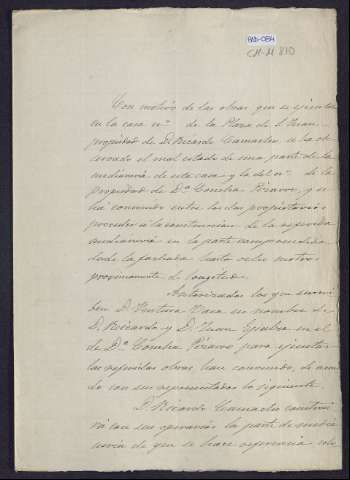 CM-M 810
Con motivo de las obras que se ejecutan
en la casa nº de la Plaza de S. Juan
propiedad de D. Ricardo Camacho se ha ob-
servado el mal estado de una parte de la
medianería de esta casa y la del nº de la
propiedad de Dª Concha Pizarro, y se
ha convenido entre los dos propietarios
proceder a la construcción de la referida
medianería en la parte comprendida
desde la fachada hasta ocho metros
proximamente de longitud.
Autorizados los que suscri-
ben D. Ventura Vaca en nombre de
D. Ricardo y D. Juan en el
de Dª Concha Pizarro para ejecutar
las referidas obras han convenido, de acuer
do con sus representados lo siguiente.
D. Ricardo Camacho construi
rá con sus operarios la parte de media
nería de que se hace referencia